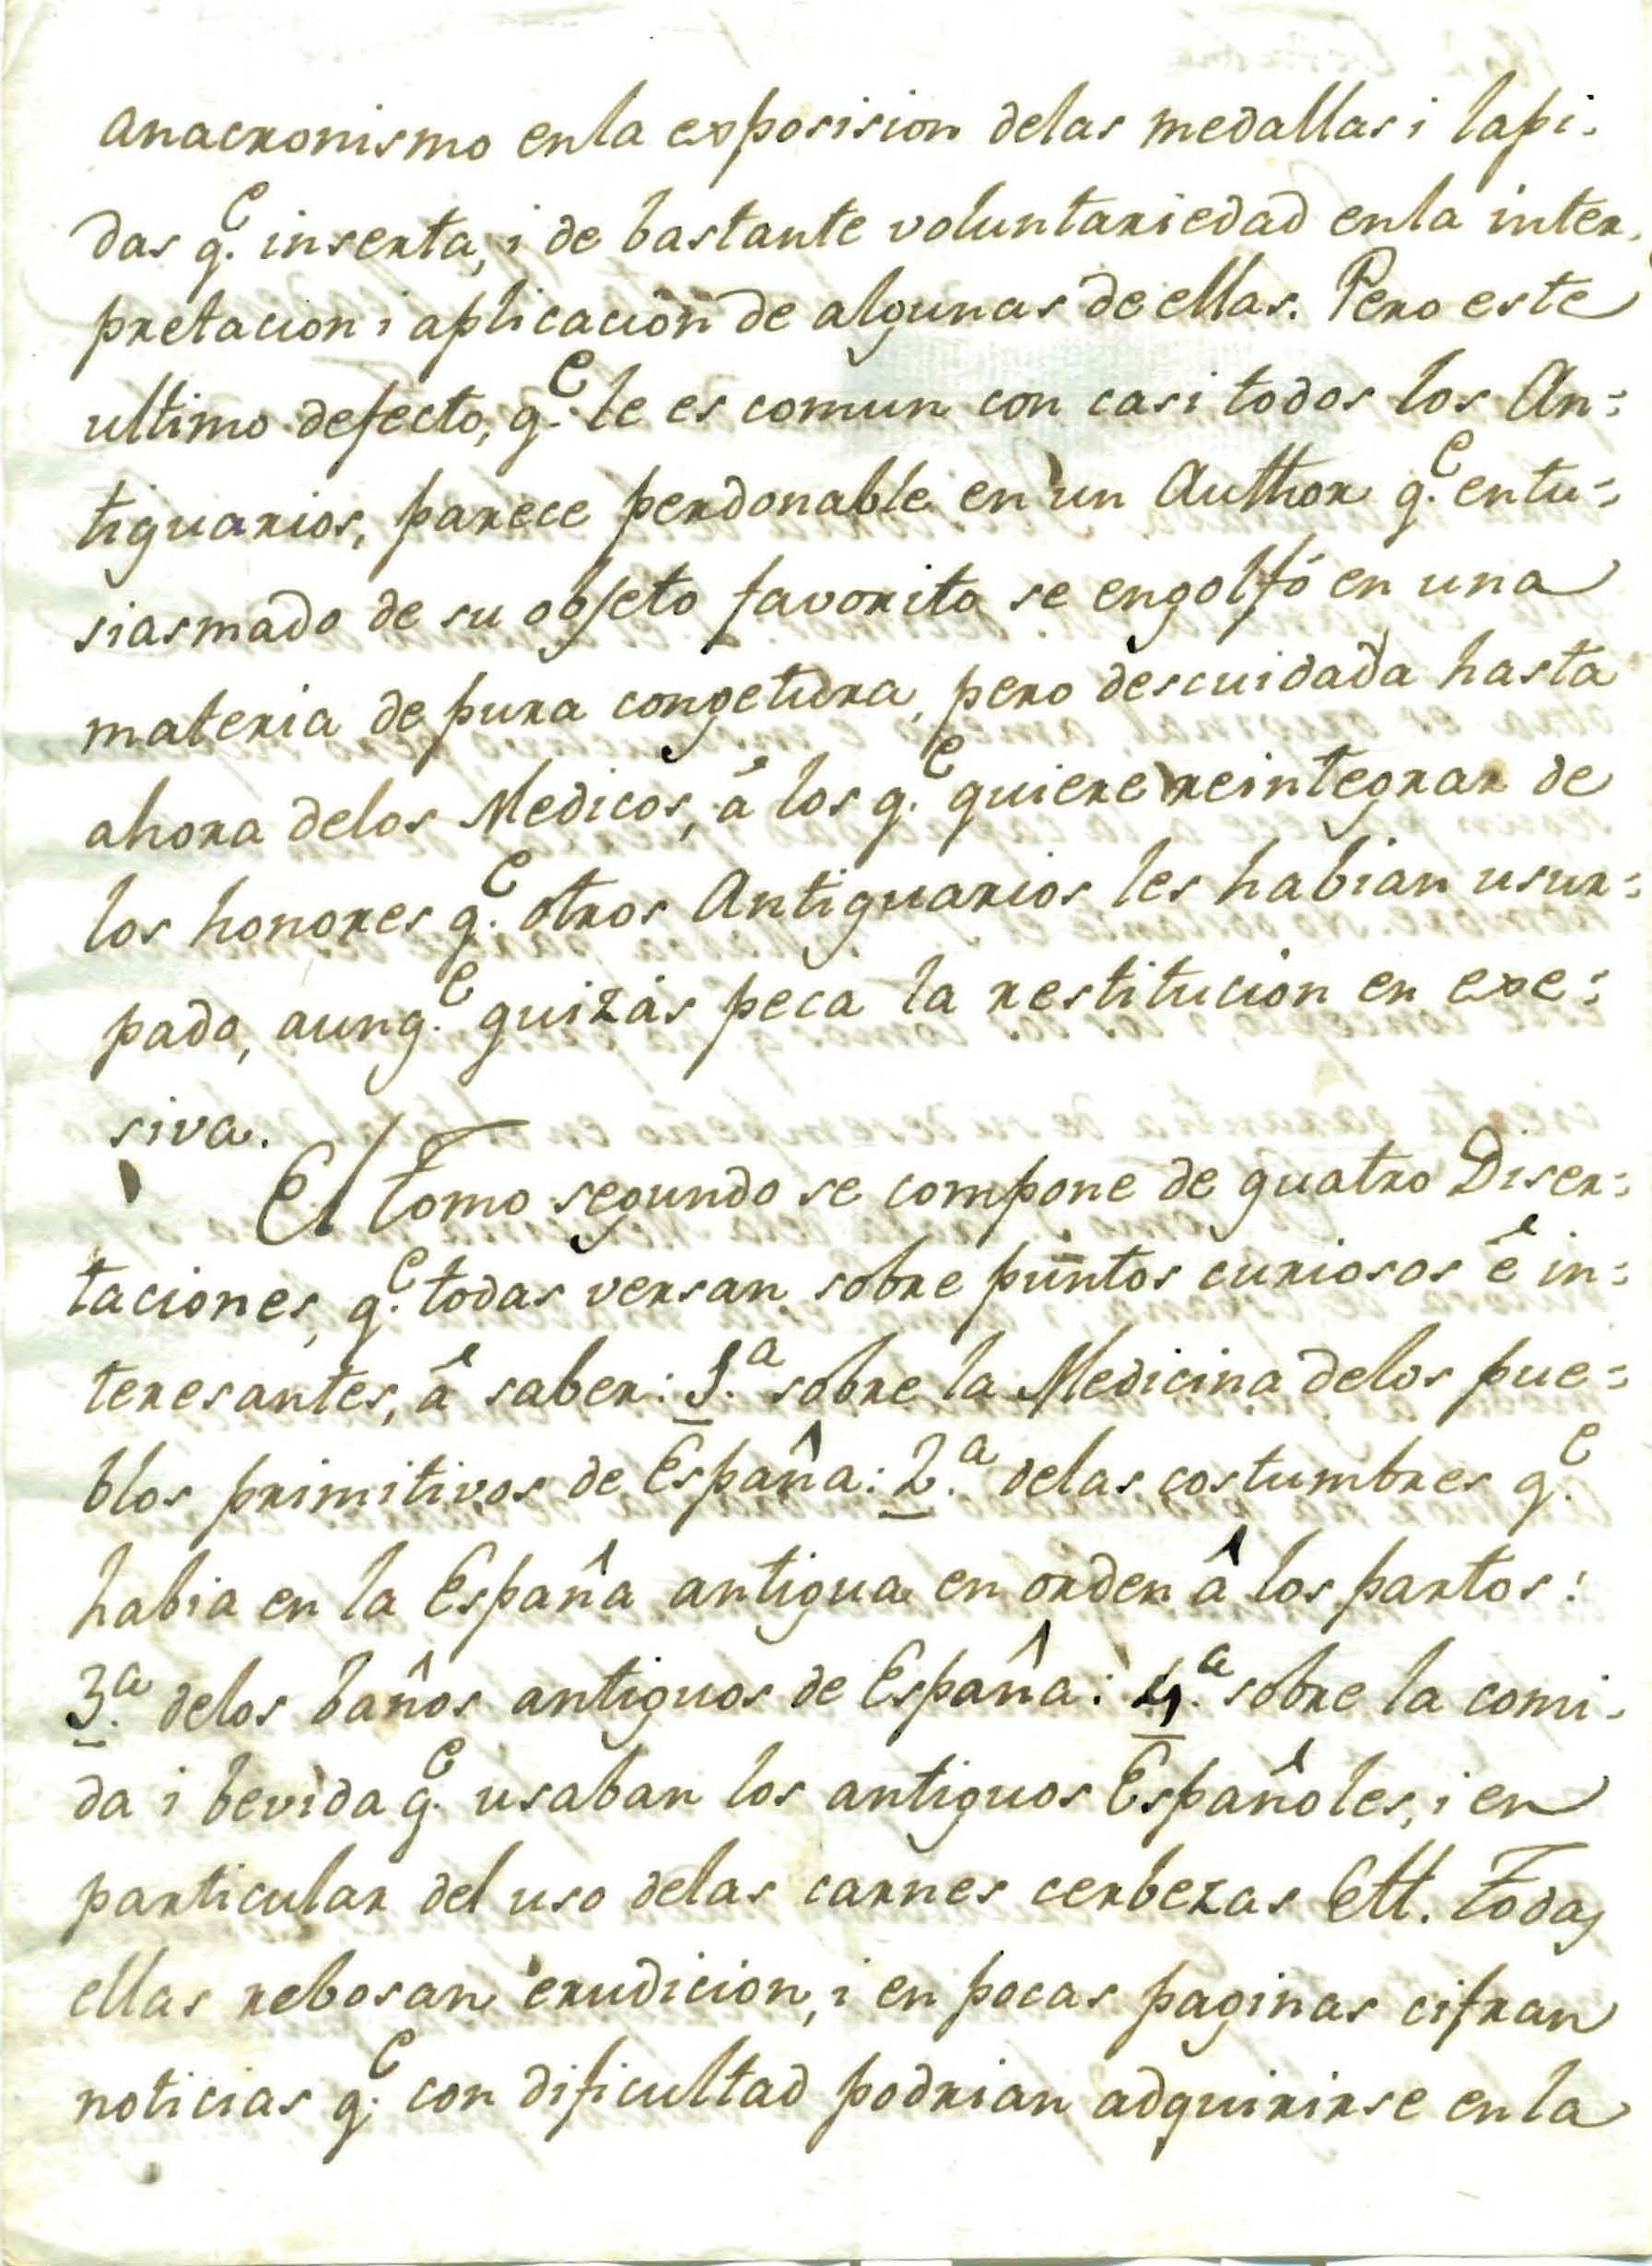 anacronismo enla exposision delas medallas i lapi-
das q.e inserta, i de bastante voluntariedad enla inter-
pretacion i aplicacion de algunas de ellas. Pero este
ultimo defecto, q.e le es comun con casi todos los An=
tiquarios, parece perdonable en un Author q.e entu=
siasmado de su objeto favorito se engolfó en una
materia de pura congetura, pero descuidada hasta
ahora delos Medicos, á los q.e quiere reintegrar de
los honores q.e otros Antiquarios les habian usur=
pado, aunq.e quizás peca la restitucion en exe=
siva.
El Tomo segundo se compone de quatro Diser=
taciones, q.e todas versan sobre puntos curiosos é in=
teresantes, á saber: 1.a sobre la Medicina delos pue=
blos primitivos de España: 2.a delas costumbres q.e
habia en la España antigua en orden â los partos:
3.a delos baños antiguos de España: 4.a sobre la comi-
da i bevida q.e usaban los antiguos Españoles, i en
particular del uso delas carnes cerbezas Ett. Todas
ellas rebosan erudicion, i en pocas paginas cifran
noticias q.e con dificultad podrian adquirirse enla